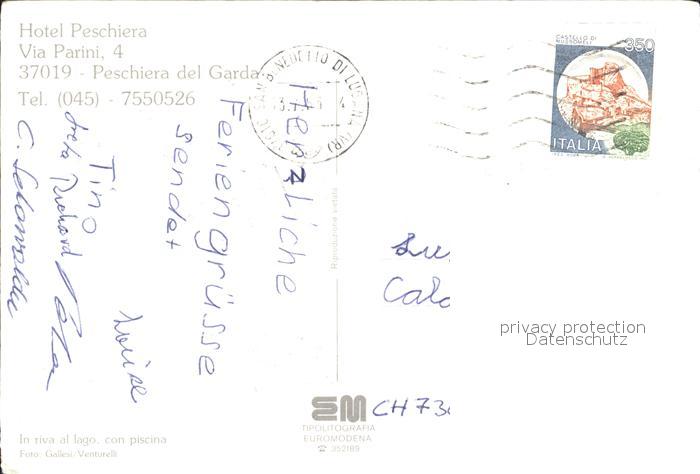 Hotel Peschiera
Via Parini, 4
37019 - Peschiera del Garda
Tel. (045) - 7550526
Herzliche
Feriengrüsse
sendet
Tino
Richard
Luise
C.
In riva al lago, con piscina
Foto: Gallesi/Venturelli
Riproduzione vietata
EM
TIPOLITOGRAFIA
EUROMODENA
☎ 352189
SAN BENEDETTO DI LUGANA (VR)
CASTELLO DI
MUSSOMELI
350
ITALIA
CH 73
privacy protection
Datenschutz